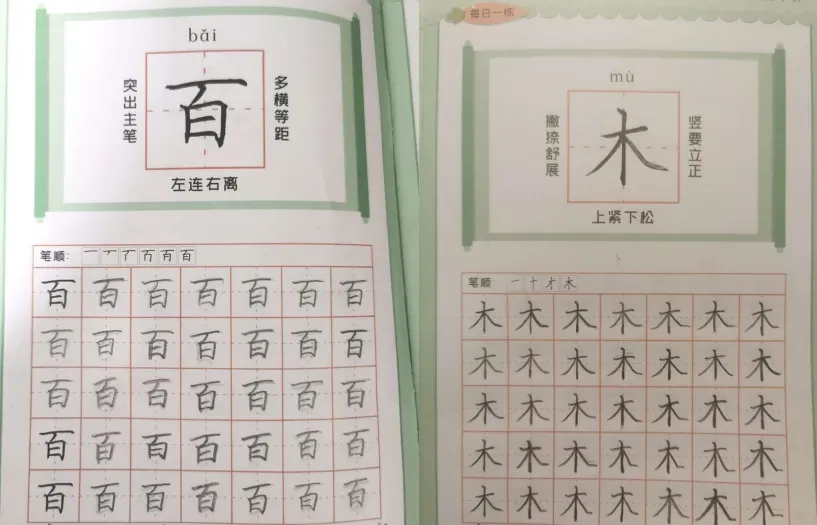 bǎi
突出主笔
百
多横等距
左连右离
笔顺: 一 百
百 百 百 百 百 百 百
百 百 百 百 百 百 百
百 百 百 百 百 百 百
百 百 百 百 百 百 百
百 百 百 百 百 百 百
每日一练
mù
撇捺舒展
木
竖要立正
上紧下松
笔顺 一 十 才 木
木 木 木 木 木 木 木
木 木 木 木 木 木 木
木 木 木 木 木 木 木
木 木 木 木 木 木 木
木 木 木 木 木 木 木